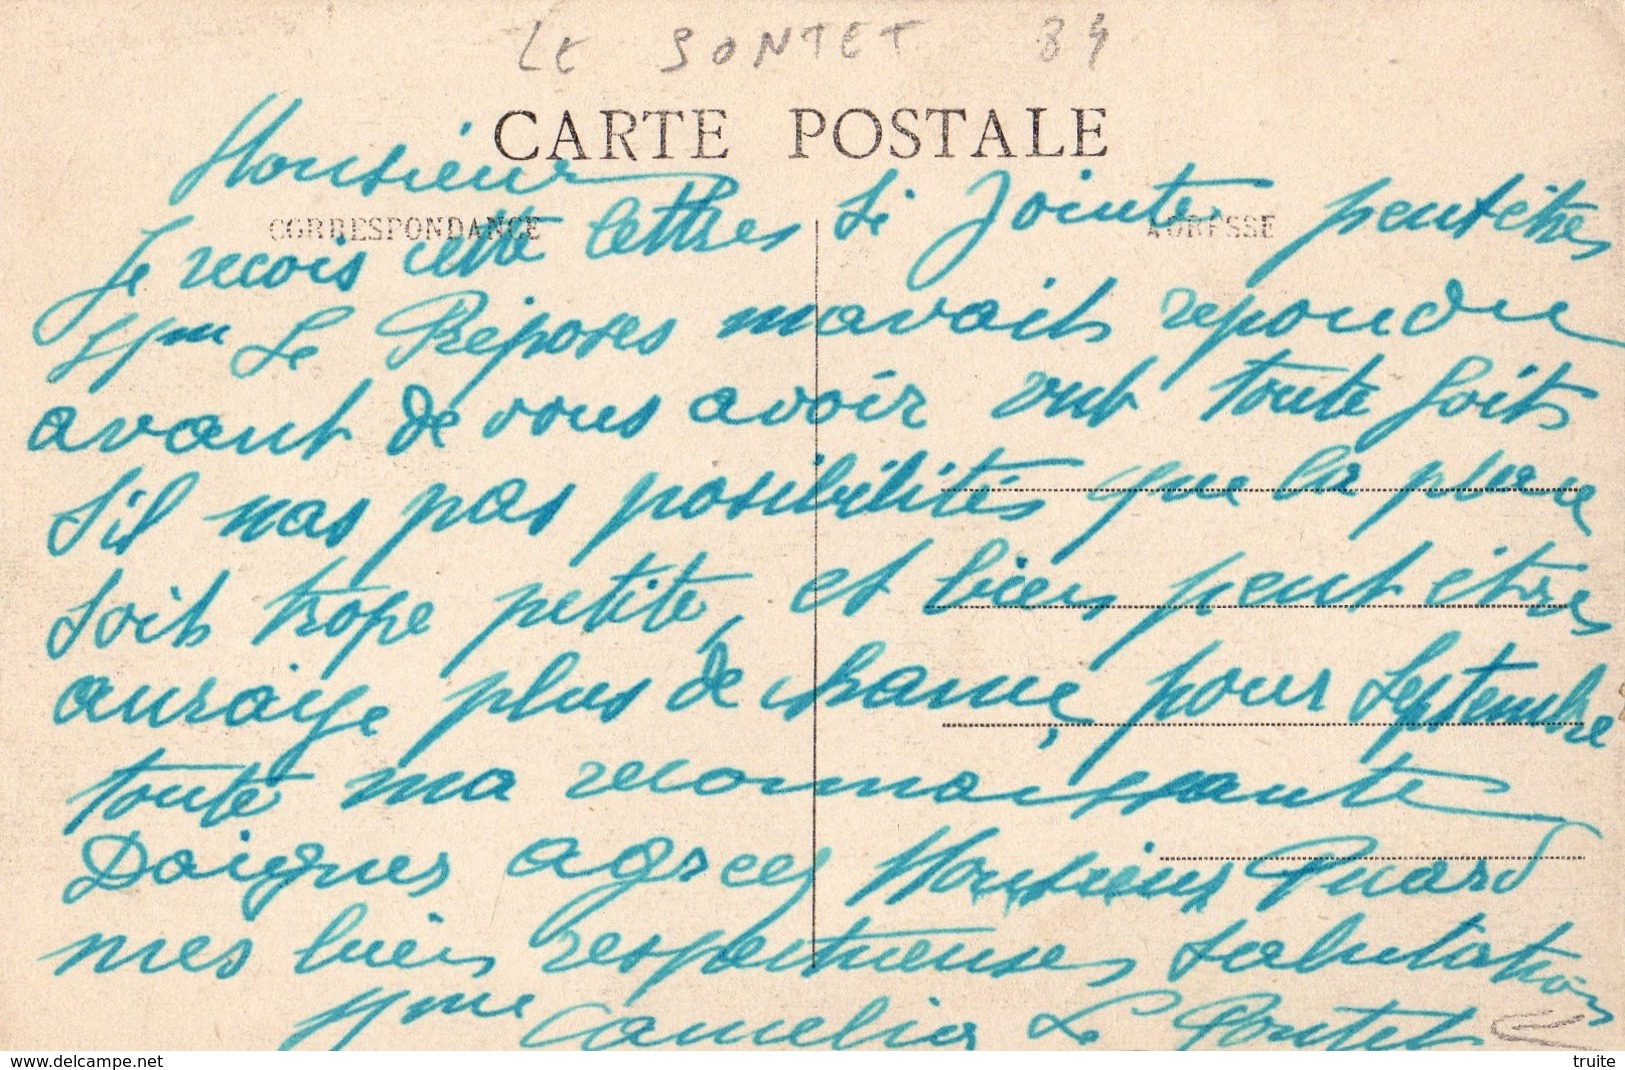 LE PONTET 84
CARTE POSTALE
Monsieur
CORRESPONDANCE
ADRESSE
Je recois cette lettres si Jointe peutêtres
Mme Le Réposes mavaits repondue
avant de vous avoir toute foits
Sil nas pas posibilités que la place
soits trope petite, et bien peut êtres
auraige plus de chance, pour Septembre
toute ma reconnaissante
Daignes agreez Monsieur Puard
mes bien respectueuses salutation
Mme Camelia Le Pontet
www.delcampe.net
truite